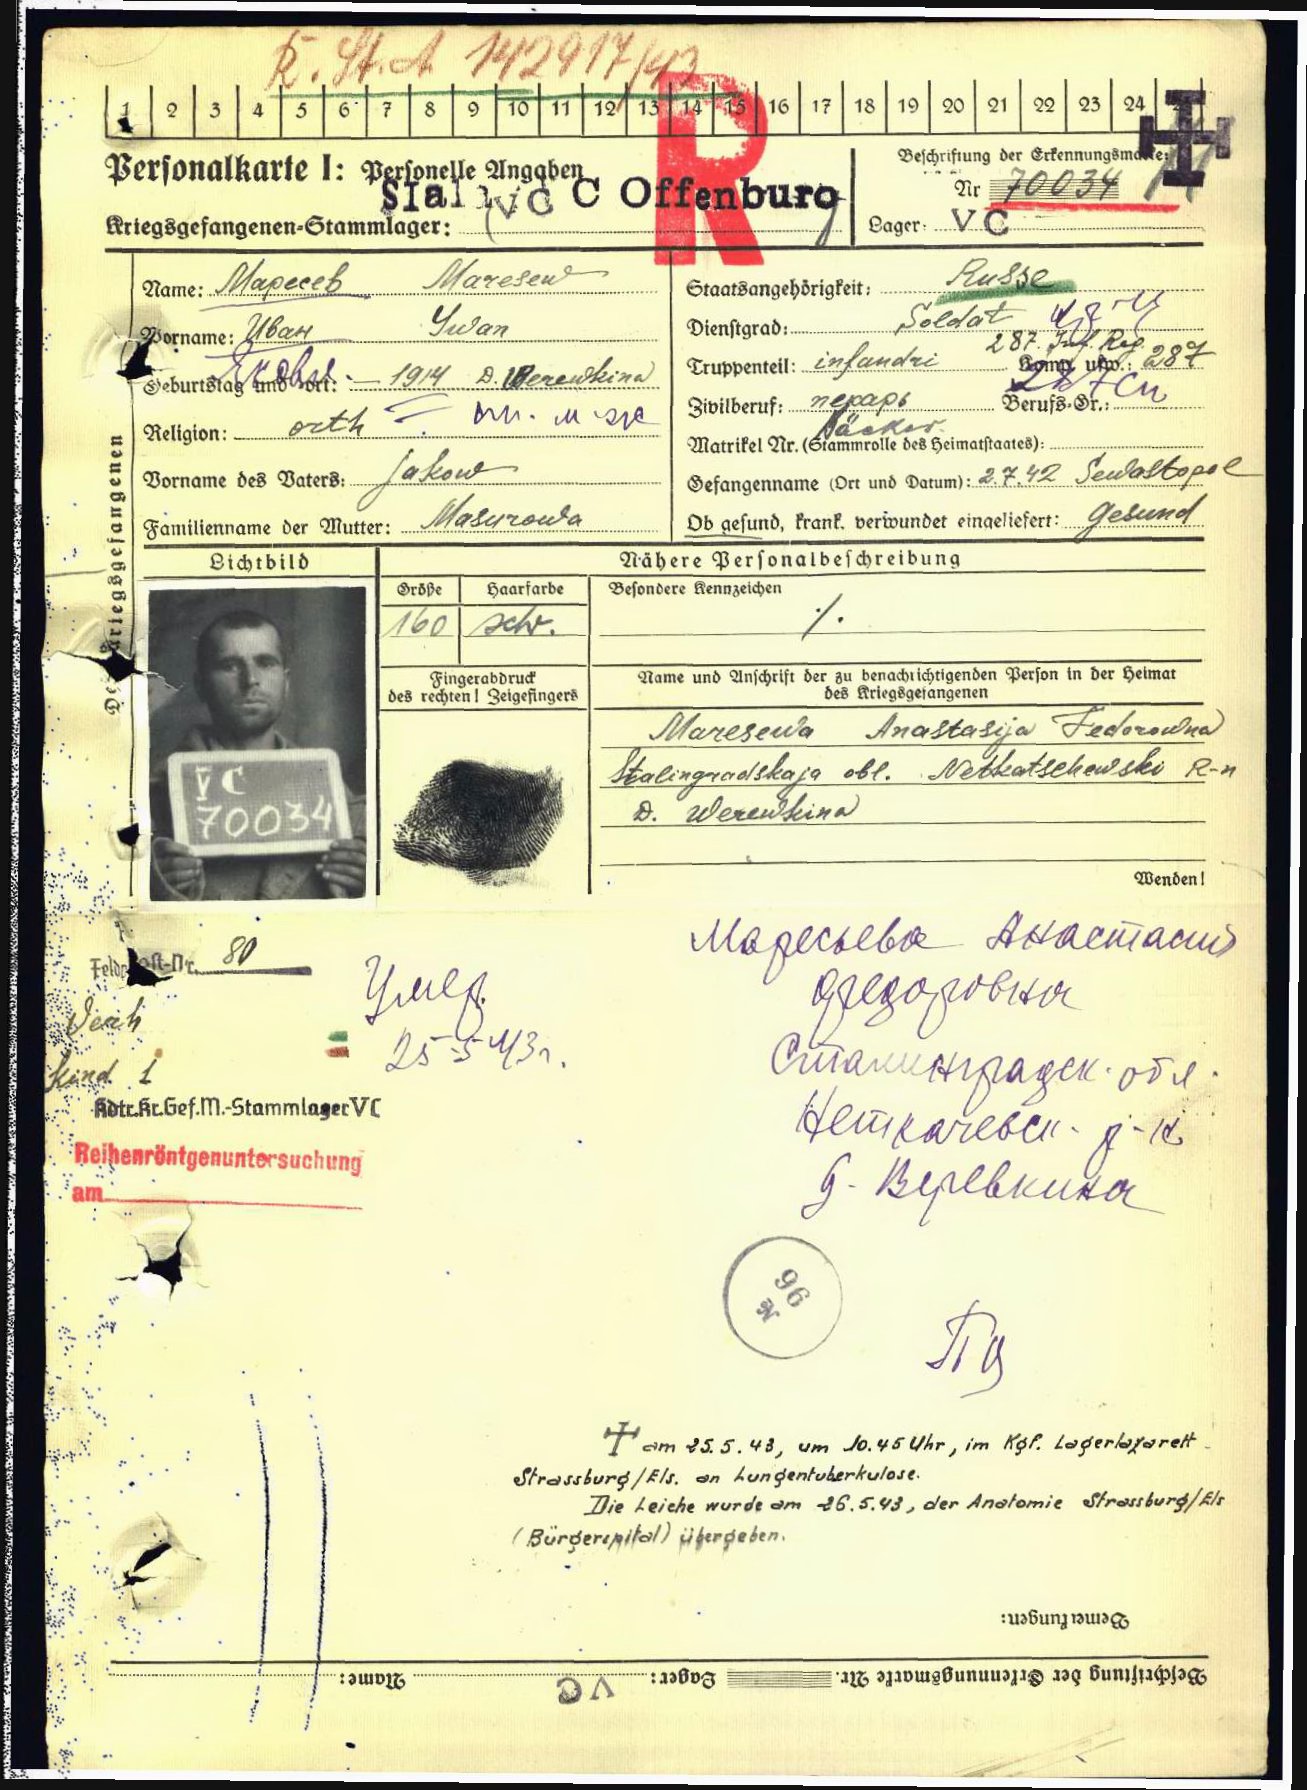 R. St. A 142917/42
1 2 3 4 5 6 7 8 9 10 11 12 13 14 15 16 17 18 19 20 21 22 23 24
R
Personalkarte I: Personelle Angaben
Beschriftung der Erkennungsmarke:
Nr 70034
Kriegsgefangenen-Stammlager: Stalag V C Offenburg
Lager: V C
Des Kriegsgefangenen
Name: Маресев Maresew
Vorname: Иван Iwan
Яковл
Geburtstag und -ort: — 1914 D. Werewkina
Religion: orth
Vorname des Vaters: Jakow
Familienname der Mutter: Masurowa
Staatsangehörigkeit: Russe
Dienstgrad: Soldat
287. Inf. Reg.
Truppenteil: infandri Komp. usw.: 287
287 сп
Zivilberuf: пекарь Berufs-Gr.:
Bäcker.
Matrikel Nr. (Stammrolle des Heimatstaates):
Gefangennahme (Ort und Datum): 2.7.42 Sewastopol
Ob gesund, krank, verwundet eingeliefert: Gesund
Lichtbild
Nähere Personalbeschreibung
Größe Haarfarbe Besondere Kennzeichen
160 schw. ./.
Fingerabdruck
des rechten! Zeigefingers
Name und Anschrift der zu benachrichtigenden Person in der Heimat
des Kriegsgefangenen
Maresewa Anastasija Fedorowna
Stalingradskaja obl. Netkatschewski R-n
D. Werewkina
V C
70034
Wenden!
Feldpost-Nr. 80
Verh
Kind 1
Kdtr.Kr.Gef.M.-Stammlager V C
Reihenröntgenuntersuchung
am
Умер.
25-5 43г.
Маресьева Анастасия
Федоровна
Сталинградск. обл.
Неткачевск. р-н
д. Веревкина
96
N
✝ am 25.5.43, um 10.45 Uhr, im Kgf. Lagerlazarett
Strassburg/Els. an Lungentuberkulose.
Die Leiche wurde am 26.5.43, der Anatomie Strassburg/Els
(Bürgerspital) übergeben.
Bemerkungen:
Beschriftung der Erkennungsmarke Nr. Lager: V C Name: